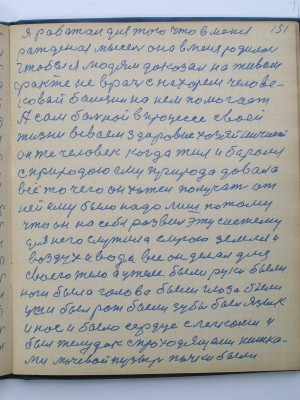 151
Я работал для того что в меня
рожденая мысел она в меня родилос
чтобы я людям доказал на живом
факте не враг с находчем челове-
сковай болшим на нем помогает
А сам болной в процессе своей
жизни в своем здоровие хозяй
он те человек когда жил и боролся
с природою ему природа довала
всё то чего он хотел получат от
ней ему было надо мыс потому
что он на себя развел эту систему
для него служила слугою земля и
воздух и вода все он делал для
своего тело а у тело были руки были
ноги была голова были глоза были
уши был рот были зубы был язык
и нос и было сердце с легкоми и
был желудок с проходящими кишка-
ми мочевой пузыр почки были